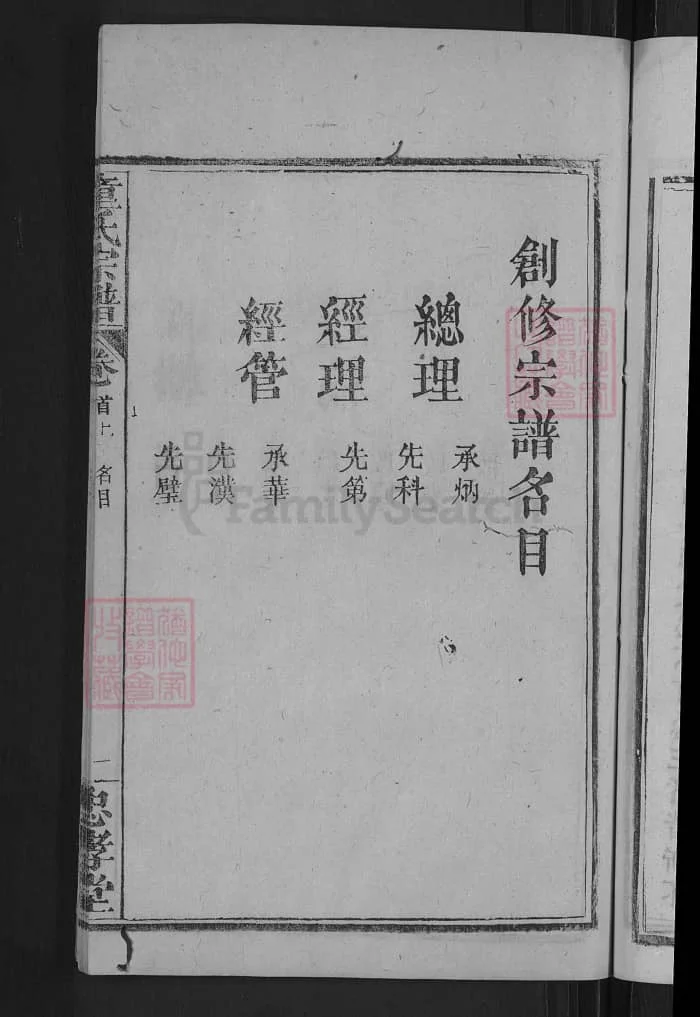 創修宗譜名目
總理
承炳
先科
經理
先第
經管
承華
先漢
先璧
童氏宗譜
卷首上
名目
二
忠孝堂
FamilySearch